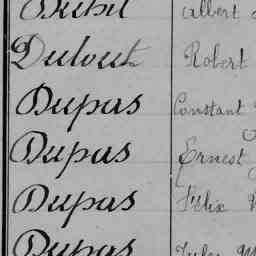 Dubil Albert
Dubout Robert
Dupas Constant
Dupas Ernest
Dupas Félix
Dupas Jules